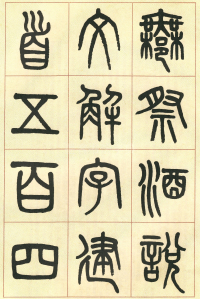 鄦祭酒說
文解字建
首五百四